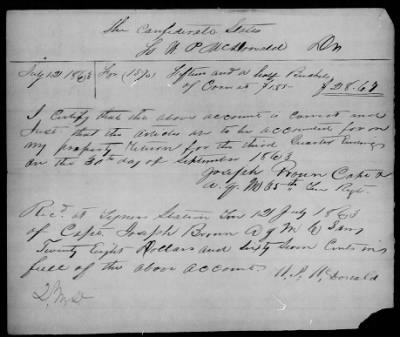 The Confederate States
To W. P. McDonald Dr
July 121 1863 For (15½) Fifteen and a half Bushels
of Corn at $1.85 $28.67
I Certify that the above account is correct and
Just that the articles are to be accounted for on
my property Return for the third Quarter Ending
on the 30th day of September 1863
Joseph Brown Capt &
A. Q. M 35th Ten Regt.
Recd at Tyners Station Ten 121 July 1863
of Capt. Joseph Brown A Q M C. S.
Twenty Eight Dollars and Sixty Seven Cents in
full of the above account
W. P. McDonald